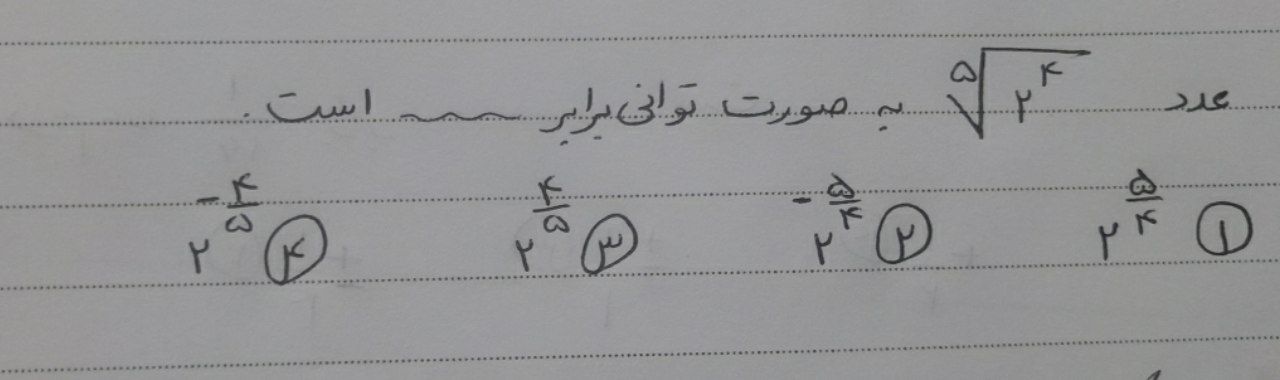 عدد ⁵√۲⁴ به صورت توانی برابر ﹏﹏ است.
① ۲^(۵/۴) ② ۲^(-۵/۴) ③ ۲^(۴/۵) ④ ۲^(-۴/۵)